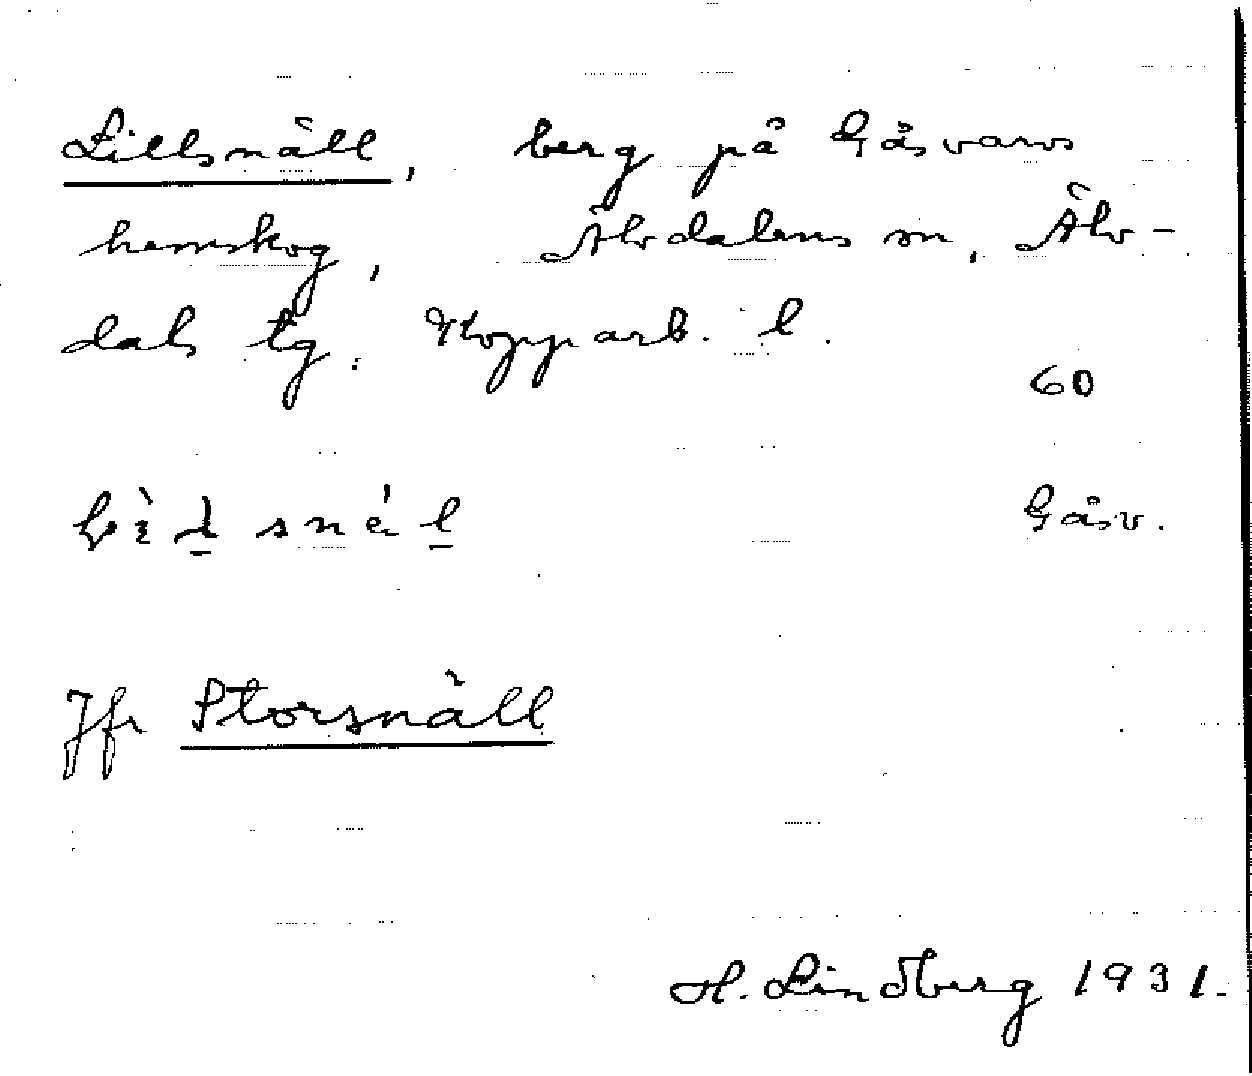 Lillsnäll, berg på Gåsvarvs
hemskog, Älvdalens sn, Älv-
dals tg. Kopparb. l.
60
Gåsv.
Jfr Storsnäll
H. Lindberg 1931.